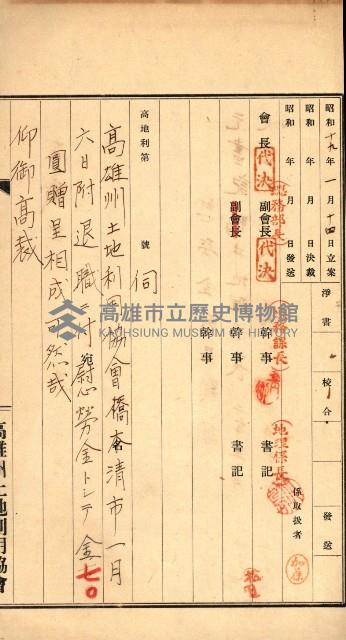 昭和十九年一月十四日立案 淨書 校合 發送
昭和 年 月 日決裁
昭和 年 月 日發送 係取扱者
總務部長 課長 地理係長 加藤
會長 代決 副會長 代決 幹事 書記
副會長 幹事 書記
幹事
高地利第 號
伺
高雄州土地利用協會橋本清市一月
六日附退職ニ付慰勞金トシテ金七〇
圓贈呈相成可然哉
仰御高裁
高雄州土地利用協會
高雄市立歷史博物館
KAOHSIUNG MUSEUM OF HISTORY